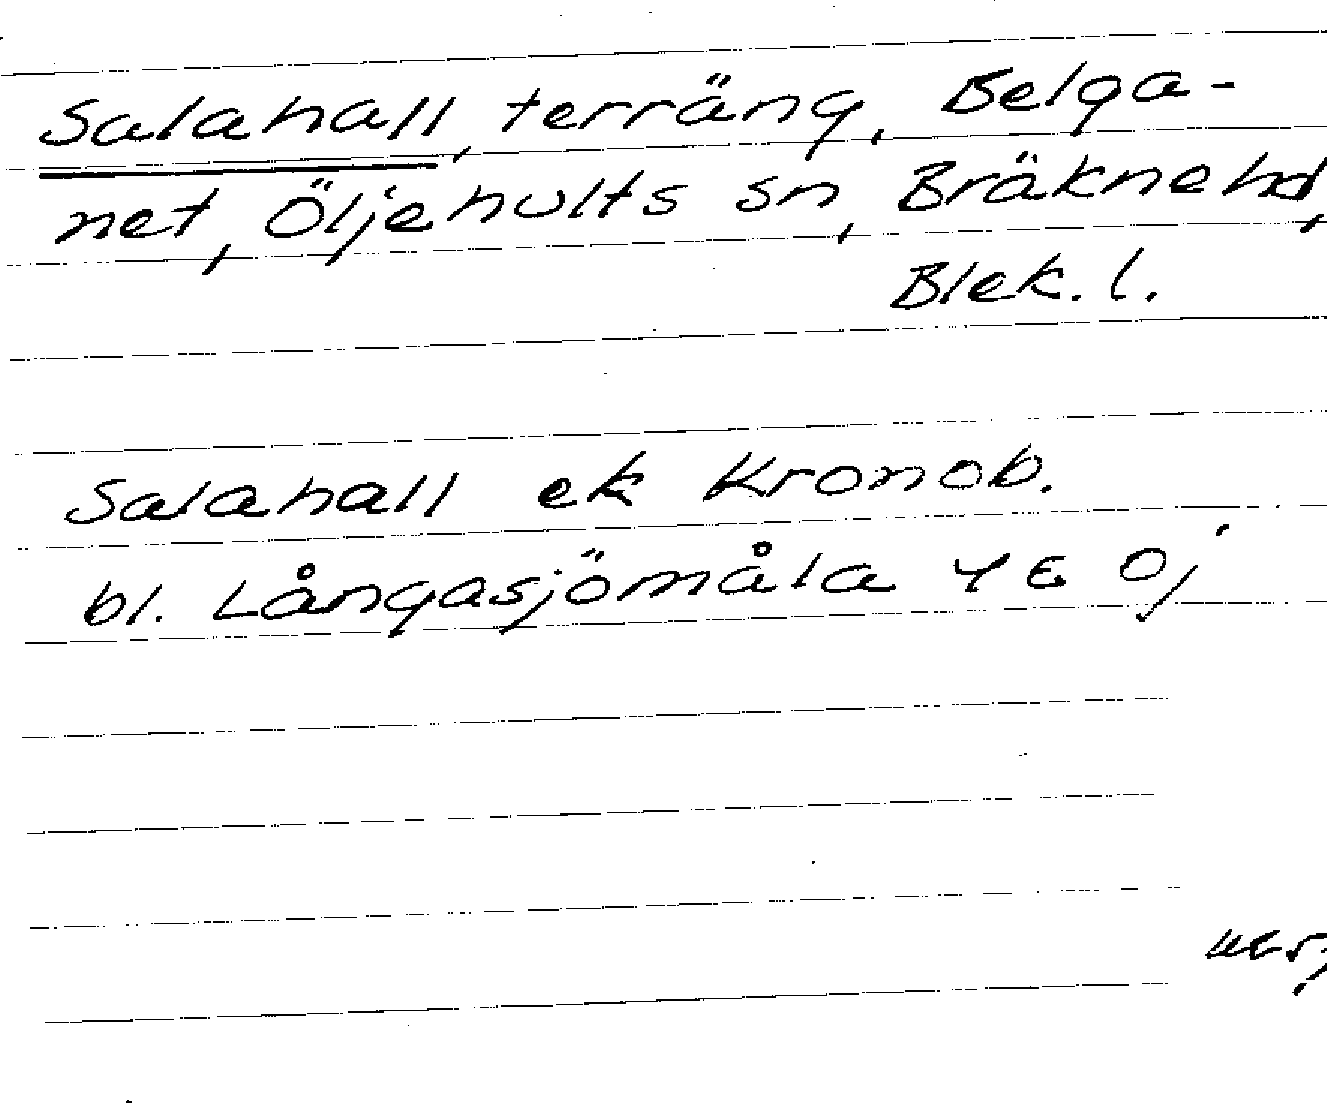 Salahall, terräng, Belga-
net, Öljehults sn, Bräknehd,
Blek. l.
Salahall ek Kronob.
bl. Långasjömåla 4 E Oj